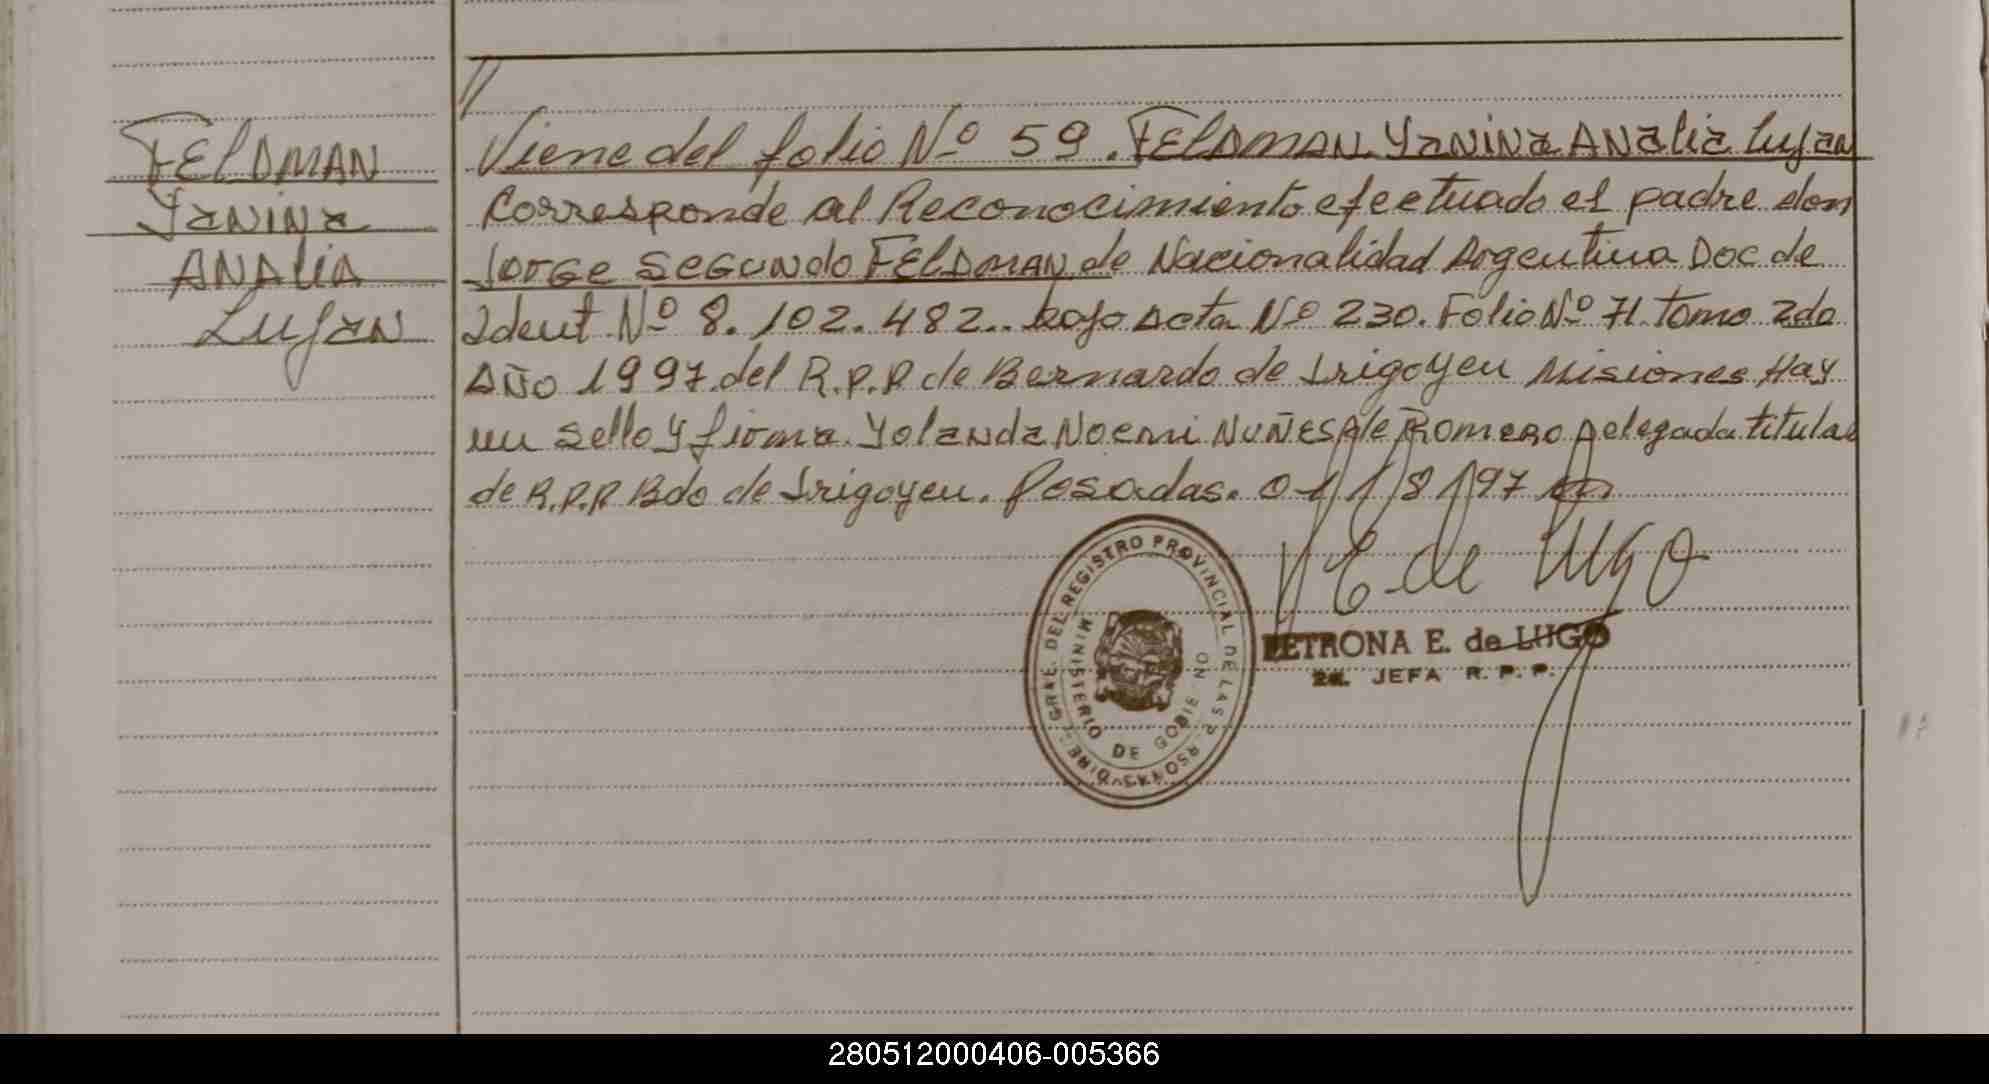 FELDMAN
YANINA
ANALIA
LUJAN
Viene del folio Nº 59. FELDMAN YANINA ANALIA Lujan
Corresponde al Reconocimiento efectuado el padre don
Jorge SEGUNDO FELDMAN de Nacionalidad Argentina Doc de
Ident Nº 8.102.482.. bajo Acta Nº 230. Folio Nº 71. Tomo 2do
Año 1997 del R.P.P de Bernardo de Irigoyen Misiones Hay
un sello y firma. Yolanda Noemi NUÑES de Romero Delegada titular
de R.P.P Bdo de Irigoyen. Posadas. 01/8/97
P E de LUGO
PETRONA E. de LUGO
2da. JEFA R. P. P.
DIREC. GRAL. DEL REGISTRO PROVINCIAL DE LAS PERSONAS
MINISTERIO DE GOBIERNO
280512000406-005366